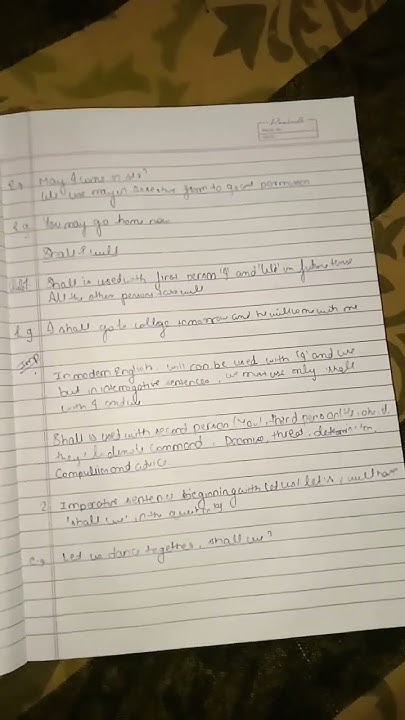 Eg May I come in sir?
We use may in assertive form to grant permission
Eg You may go home now
Shall & will
Shall is used with first person 'I' and 'We' in future tense
All the other persons take will
Eg I shall go to college tomorrow and he will come with me
Imp
In modern English, will can be used with 'I' and we
but in interrogative sentences, we must use only shall
with I and we
1 Shall is used with second person (You), third person
they to denote command, Promise, threat, determination,
Compulsion and advice
2 Imperative sentences beginning with Let us/ let's, will have
'shall we' in the
e.g Let us dance together, shall we?